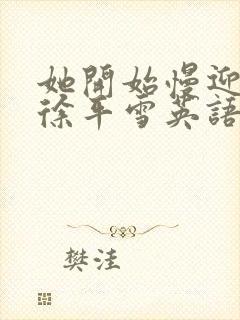 她開始慢迎
徐平雪英語
樊洼